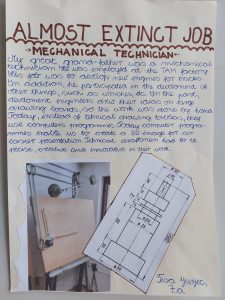 ALMOST EXTINCT JOB
-MECHANICAL TECHNICIAN-
My great grand-father was a mechanical
technician. He was employed at the TAM factory.
His job was to develop new engines for trucks.
In addition, he participated in the development of
other things, such as winches, etc. In the past,
development engineers drew their ideas on large
drawing boards, so the work was done by hand.
Today, instead of technical drawing tables, they
use computer programmes. Today computer progra-
mmes enable us to create a 3D image for an
easier presentation. Technical draftsmen had to be
precise and innovative in their work.
7.a